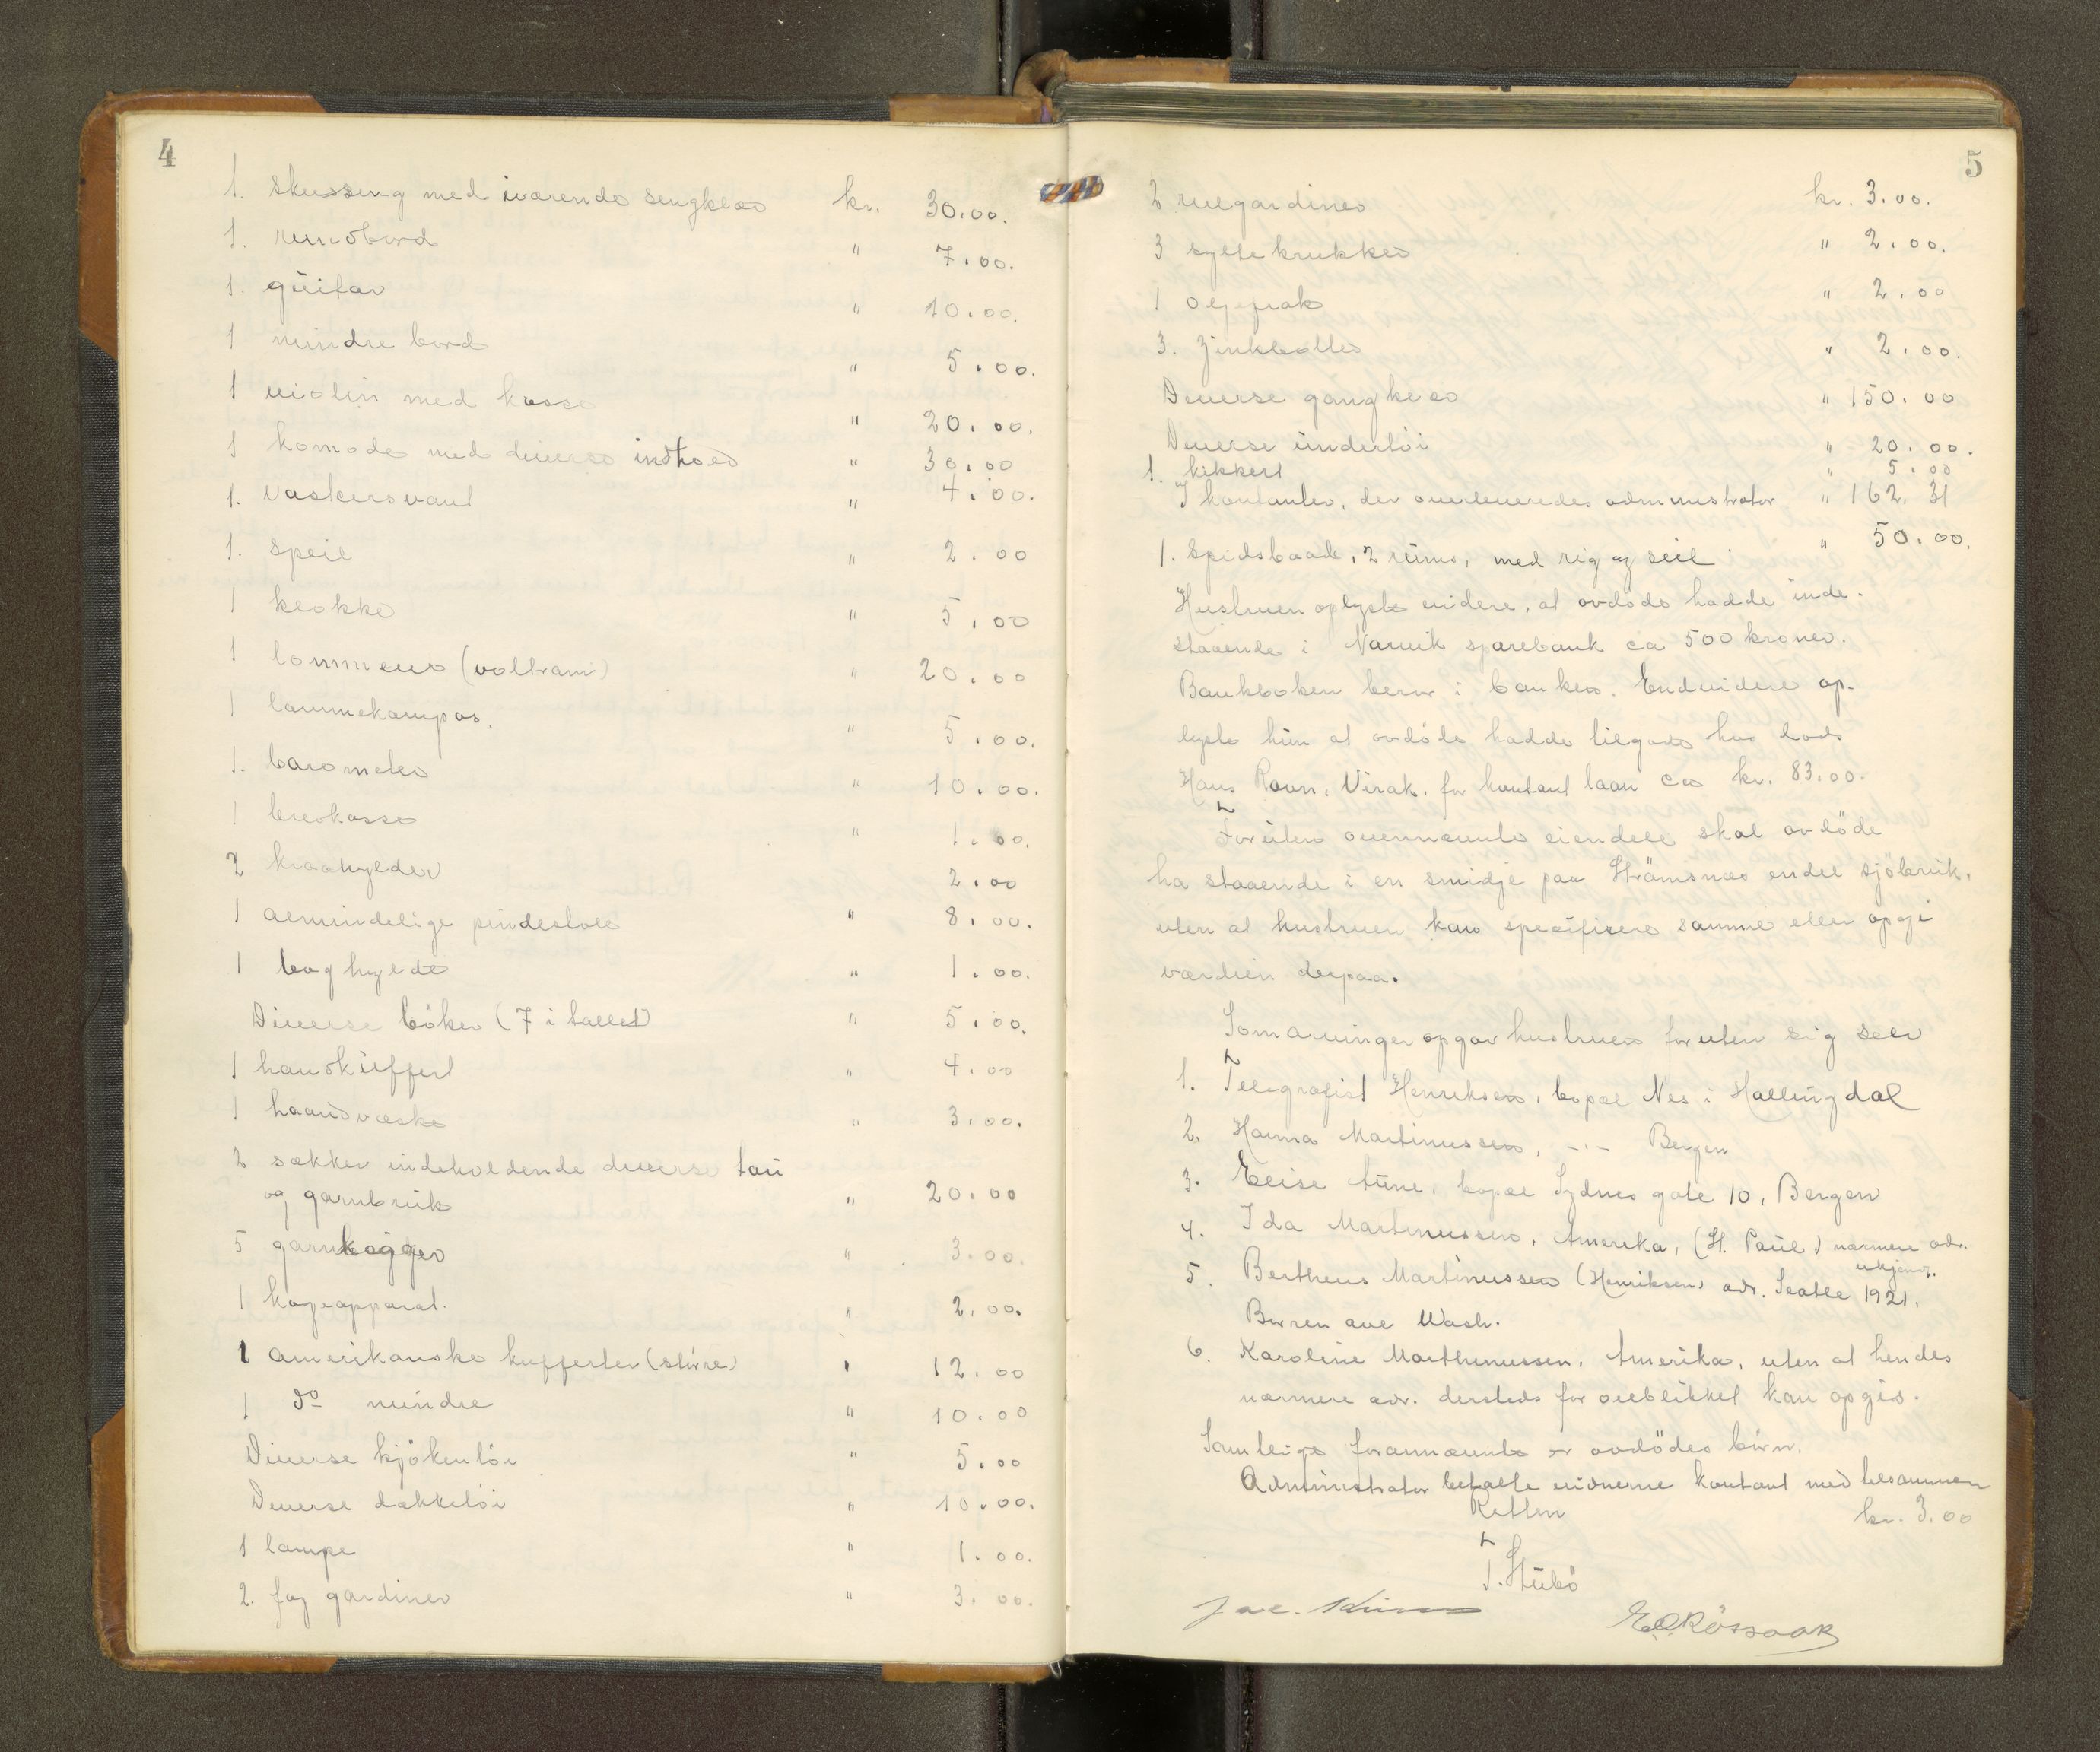 4
1. skusseng med iværende sengklær kr. 30.00.
1. rundbord " 7.00.
1. guitar " 10.00.
1 mindre bord " 5.00.
1 violin med kasse " 20.00.
1 komode med diverse indhold " 30.00
1. vaskerservant " 4.00.
1. speil " 2.00
1 klokke " 5.00
1 lommeur (voltram) " 20.00
1 lommekompas. " 5.00.
1. barometer " 10.00.
1 brevkasse " 1.00.
2 kraahylder 2.00
1 almindelige pindestole " 8.00.
1 boghylde " 1.00.
Diverse böker (7 i tallet) " 5.00.
1 handkuffert " 4.00
1 haandvæske " 3.00.
2 sækker indeholdende diverse tau
og garnbruk " 20.00
5 garnkagger " 3.00.
1 kogeapparat. " 2.00.
1 amerikanske kufferter (större) " 12.00
1 do mindre " 10.00
Diverse kjökentöi " 5.00
Diverse dækketöi " 10.00.
1 lampe " 1.00.
2. fag gardiner " 3.00.
5
2 rulgardiner kr. 3.00.
3 syltekrukker " 2.00.
1 oljefrak " 2.00
3. zinkbøtter " 2.00.
Diverse gangklær " 150.00
Diverse undertöi " 20.00.
1. kikkert " 5.00
I kontanter, der overleveredes administrator " 162.31
1. spidsbaad, 2 rums, med rig og seil " 50.00.
Hustruen oplyste videre, at avdöde hadde inde-
staaende i Narvik sparebank ca 500 kroner.
Bankboken beror i banken. Endvidere op-
lyste hun at avdöde hadde tilgode hos lods
Hans Ravn, Virak. for kontant laan ca kr. 83.00.
Foruten ovennævnte eiendele skal avdöde
ha staaende i en smidje paa Strömsnes endel sjöbruk.
uten at hustruen kan specifisere samme eller opgi
værdien derpaa.
Som arvinger opgav hustruen foruten sig selv
1. Telegrafist Henriksen, bopæl Nes i Hallingdal
2. Hanna Martinussen, -"- Bergen
3. Elise Aune, bopæl Sydnes gate 10, Bergen
4. Ida Martinussen, Amerika, (St. Paul,) nærmere adr.
ukjendt.
5. Bertheus Martinussen (Henriksen) adr. Seatle 1921.
Borren ave Wash.
6. Karoline Marthinussen, Amerika, uten at hendes
nærmere adr. dersteds for öieblikket kan opgis.
Samtlige forannævnte er avdödes börn.
Administrator betalte vidnerne kontant med tilsammen
kr. 3.00
Retten
T. Stubö
Jac.
E. Rössaak